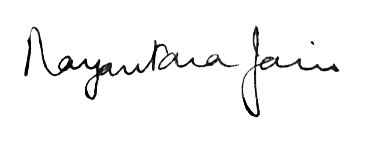 Nayantara Jain